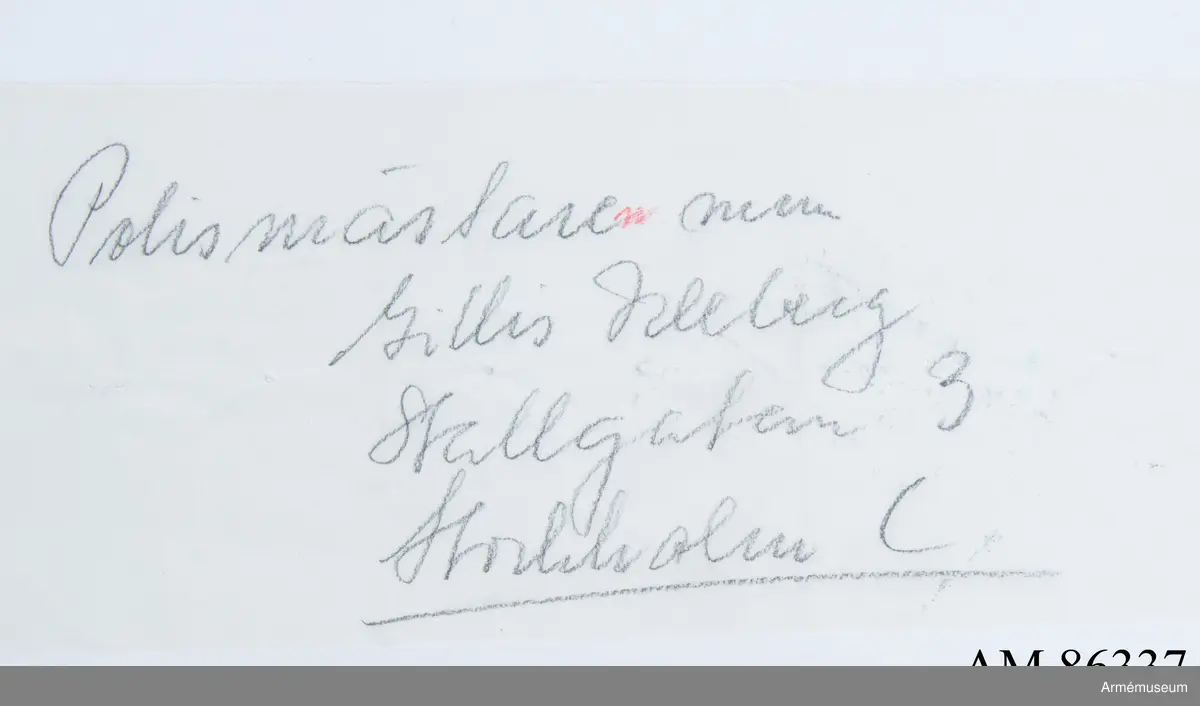 Polismästaren mm
Gillis
Stallgatan 3
Stockholm C
AM 86337
Armémuseum